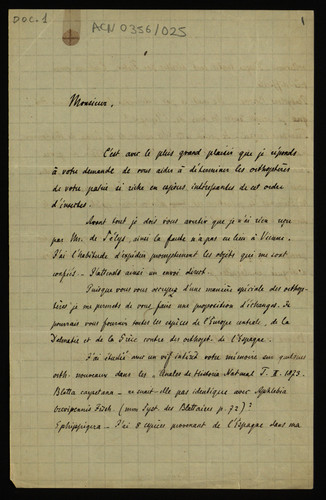 DOC. 1
ACN 0356/025
1
Monsieur,
C'est avec le plus grand plaisir que je réponds
à votre demande de vous aider à déterminer les orthoptères
de votre patrie si riche en espèces intéressantes de cet ordre
d'insectes.
Avant tout je dois vous avertir que je n'ai rien reçu
par Mr. de Sélys, ainsi la faute n'a pas eu lieu à Vienne.
J'ai l'habitude d'expédier promptement les objets qui me sont
confiés. J'attends ainsi un envoi direct.
Puisque vous vous occupez d'une manière spéciale des orthop-
tères je me permets de vous faire une proposition d'échanges. Je
pourrais vous fournir toutes les espèces de l'Europe centrale, de la
Dalmatie et de la Grèce contre des orthopt. de l'Espagne.
J'ai étudié avec un vif intérêt votre mémoire sur quelques
orth. nouveaux dans les Anales de Historia Natural T. II. 1873.
Blatta carpetana – ne serait-elle pas identique avec Aphlebia
brevipennis Fisch. (mon Syst. des Blattaires p. 72)?
Ephippigera – J'ai 8 espèces provenant de l'Espagne sans ma